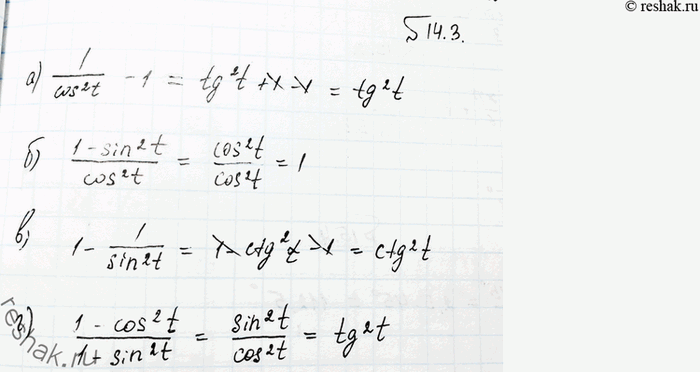 © reshak.ru
§14.3.
а) 1/cos²t - 1 = tg²t + 1 - 1 = tg²t
б) 1-sin²t/cos²t = cos²t/cos²t = 1
в) 1 - 1/sin²t = 1 - ctg²t - 1 = ctg²t
г) 1 - cos²t/1+ sin²t = sin²t/cos²t = tg²t
reshak.ru